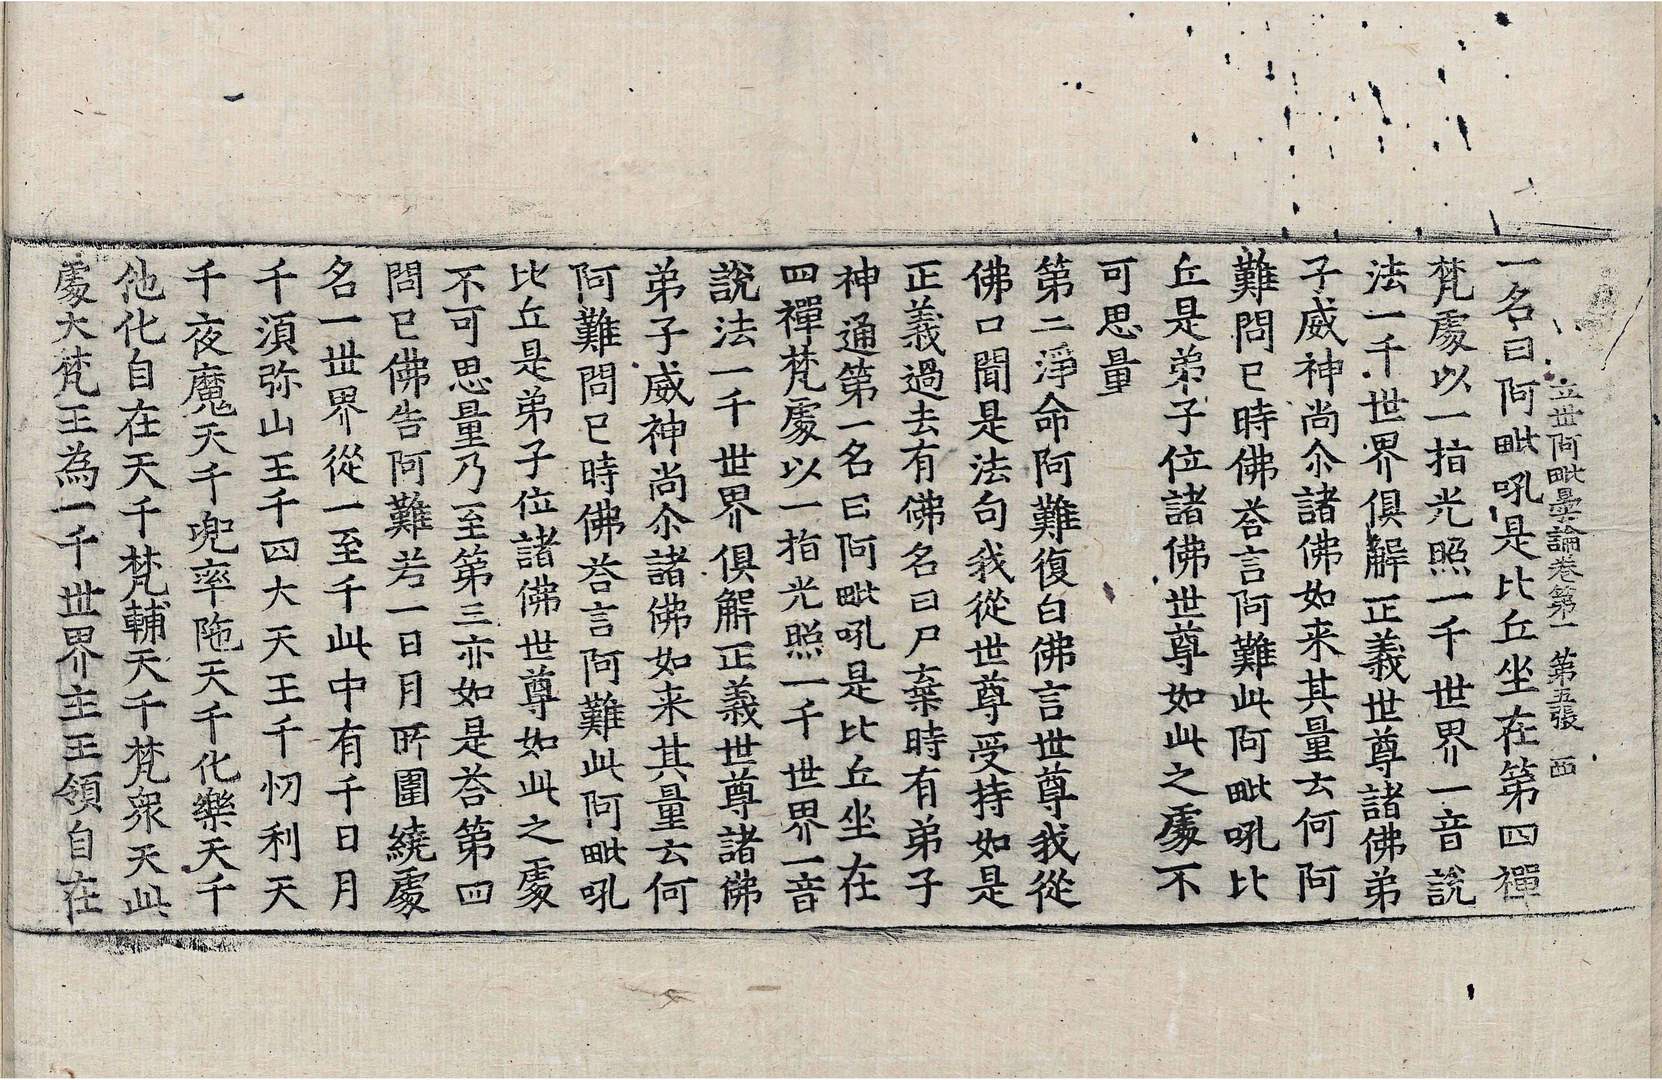 立世阿毗曇論卷第一　第五張　西
一名曰阿毗吼是比丘坐在第四禪
梵處以一指光照一千世界一音說
法一千世界俱解正義世尊諸佛弟
子威神尚尒諸佛如来其量云何阿
難問已時佛荅言阿難此阿毗吼比
丘是弟子位諸佛世尊如此之處不
可思量
第二淨命阿難復白佛言世尊我從
佛口聞是法句我從世尊受持如是
正義過去有佛名曰尸棄時有弟子
神通第一名曰阿毗吼是比丘坐在
四禪梵處以一指光照一千世界一音
說法一千世界俱解正義世尊諸佛
弟子威神尚尒諸佛如来其量云何
阿難問已時佛荅言阿難此阿毗吼
比丘是弟子位諸佛世尊如此之處
不可思量乃至第三亦如是荅第四
問已佛告阿難若一日月所圍繞處
名一世界從一至千此中有千日月
千須弥山王千四大天王千忉利天
千夜魔天千兜率陁天千化樂天千
他化自在天千梵輔天千梵衆天此
處大梵王為一千世界主王領自在